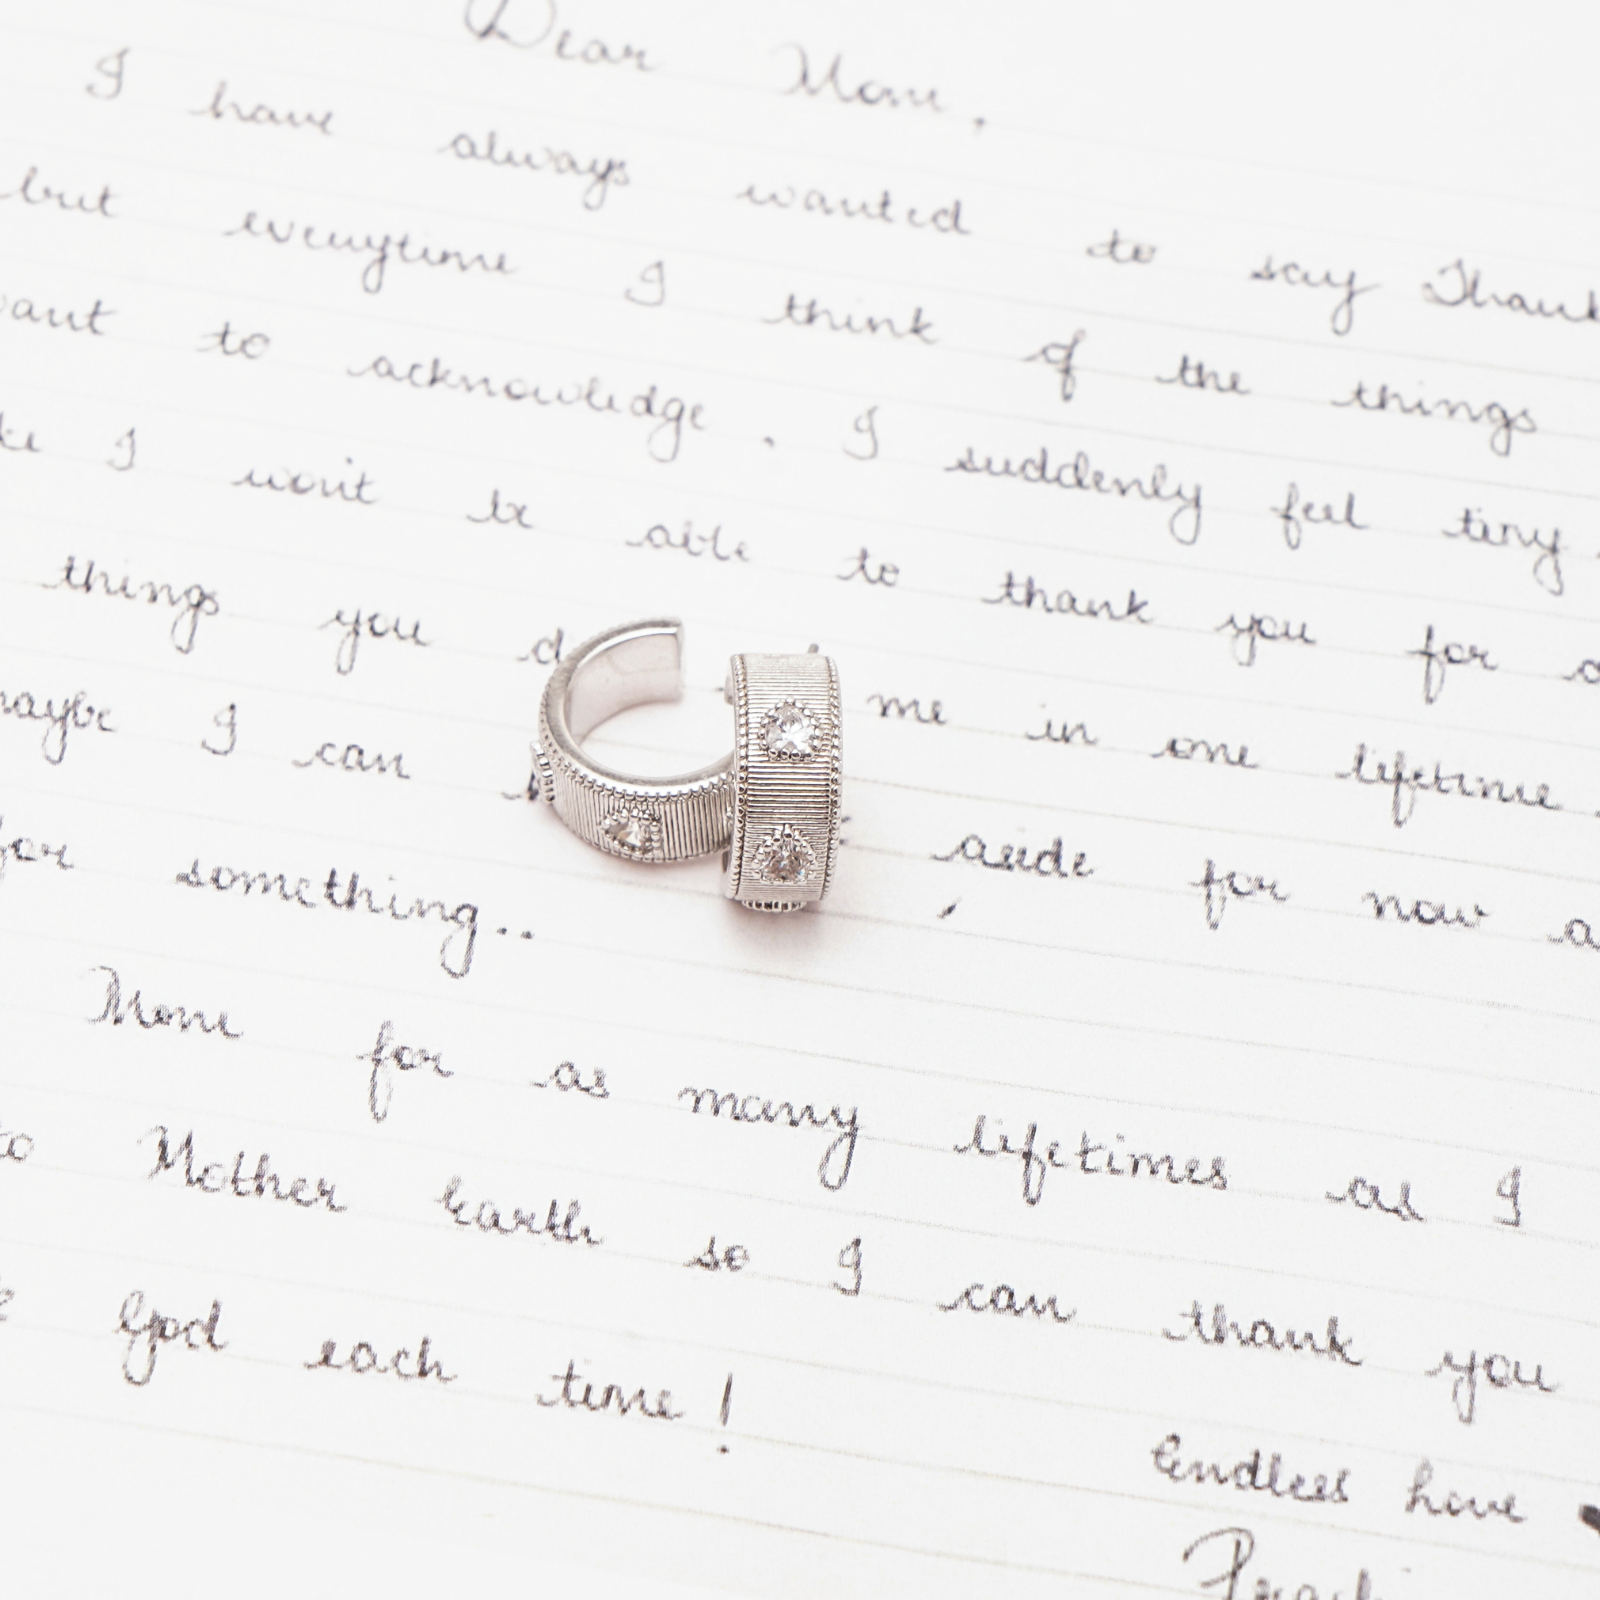 Dear Mom,
I have always wanted to say Thank
but everytime I think of the things
want to acknowledge. I suddenly feel tiny
I won't be able to thank you for
things you me in one lifetime
maybe I can aside for now
for something..
Mom for as many lifetimes as I
to Mother Earth so I can thank you
God each time!
Endless love